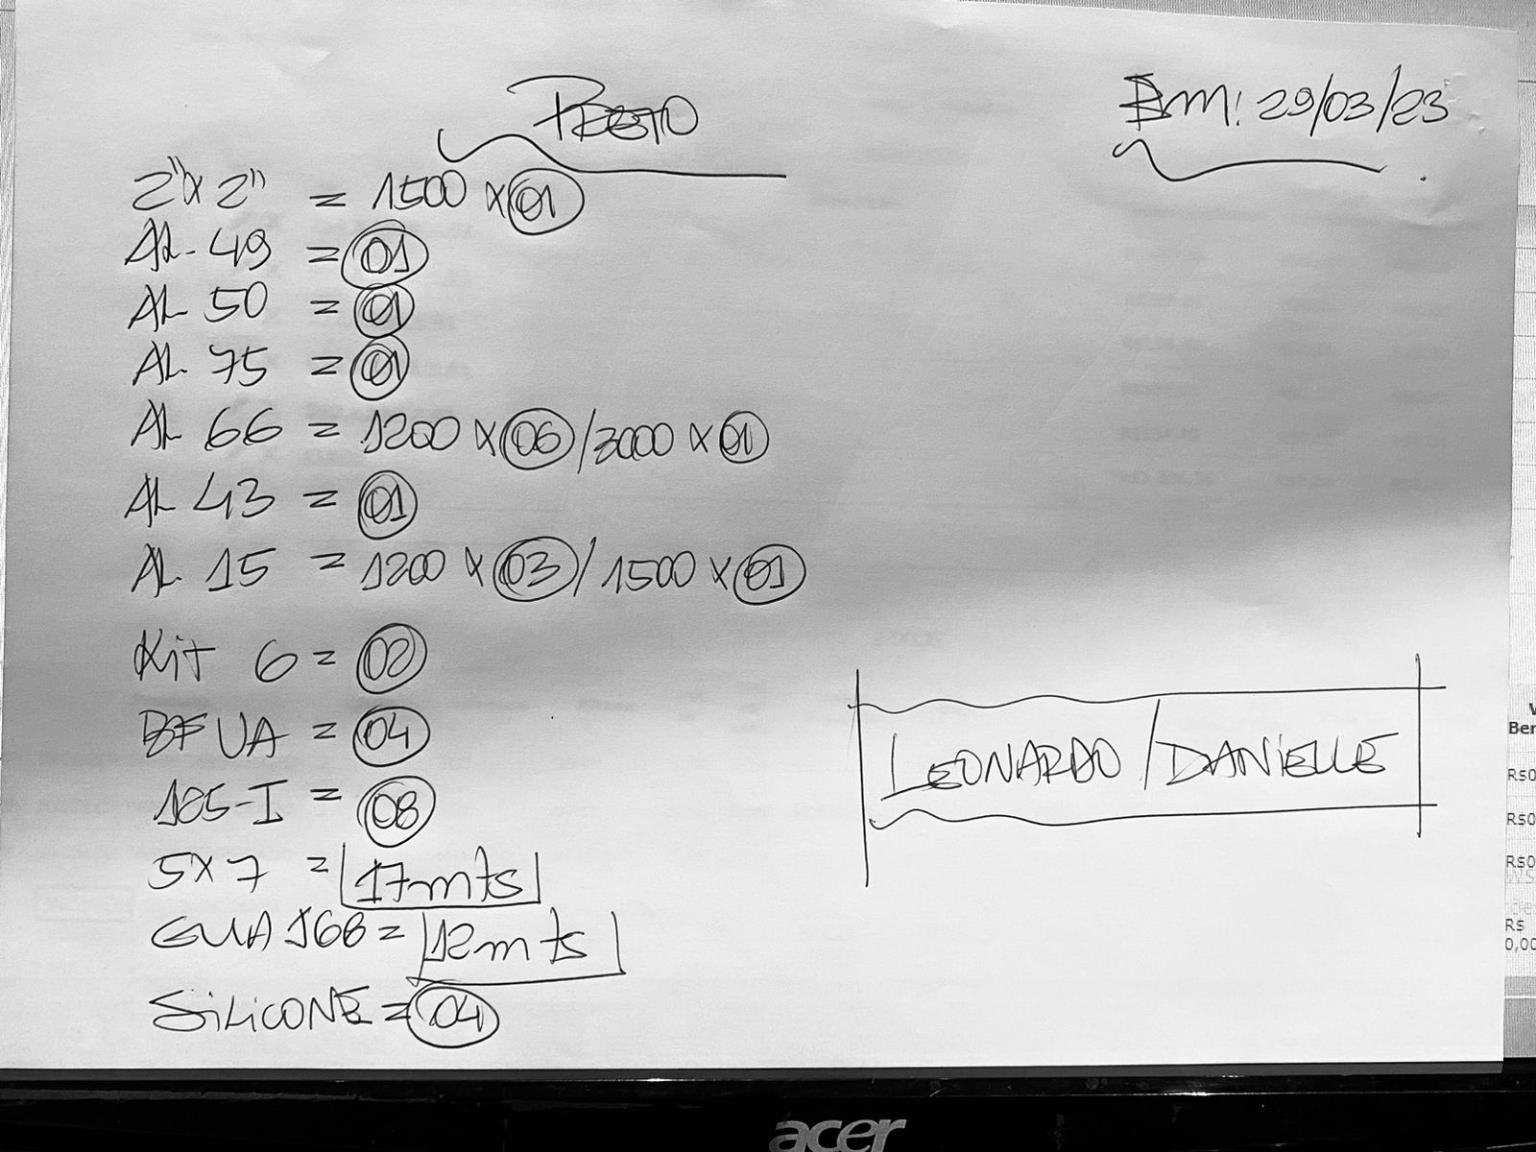 PRETO
Em: 29/03/23
2"x2" = 1500 x 01
AL-49 = 01
AL 50 = 01
AL 75 = 01
AL 66 = 1200 x 06 / 3000 x 01
AL 43 = 01
AL 15 = 1200 x 03 / 1500 x 01
Kit 6 = 02
BF UA = 04
185-I = 08
5x7 = 17mts
GUA 168 = 12mts
SiLiCONE = 04
LEONARDO / DANiELLE
Ber
R$0
R$0
R$0
R$
0,00
acer